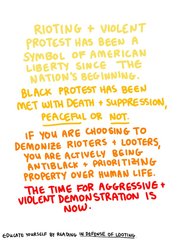 RIOTING + VIOLENT
PROTEST HAS BEEN A
SYMBOL OF AMERICAN
LIBERTY SINCE THE
NATION'S BEGINNING.
BLACK PROTEST HAS BEEN
MET WITH DEATH + SUPPRESSION,
PEACEFUL OR NOT.
IF YOU ARE CHOOSING TO
DEMONIZE RIOTERS + LOOTERS,
YOU ARE ACTIVELY BEING
ANTIBLACK + PRIORITIZING
PROPERTY OVER HUMAN LIFE.
THE TIME FOR AGGRESSIVE +
VIOLENT DEMONSTRATION IS
NOW.
EDUCATE YOURSELF BY READING IN DEFENSE OF LOOTING